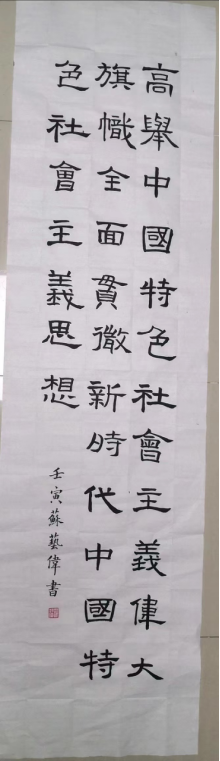 高舉中國特色社會主義偉大
旗幟全面貫徹新時代中國特
色社會主義思想
壬寅蘇藝偉書